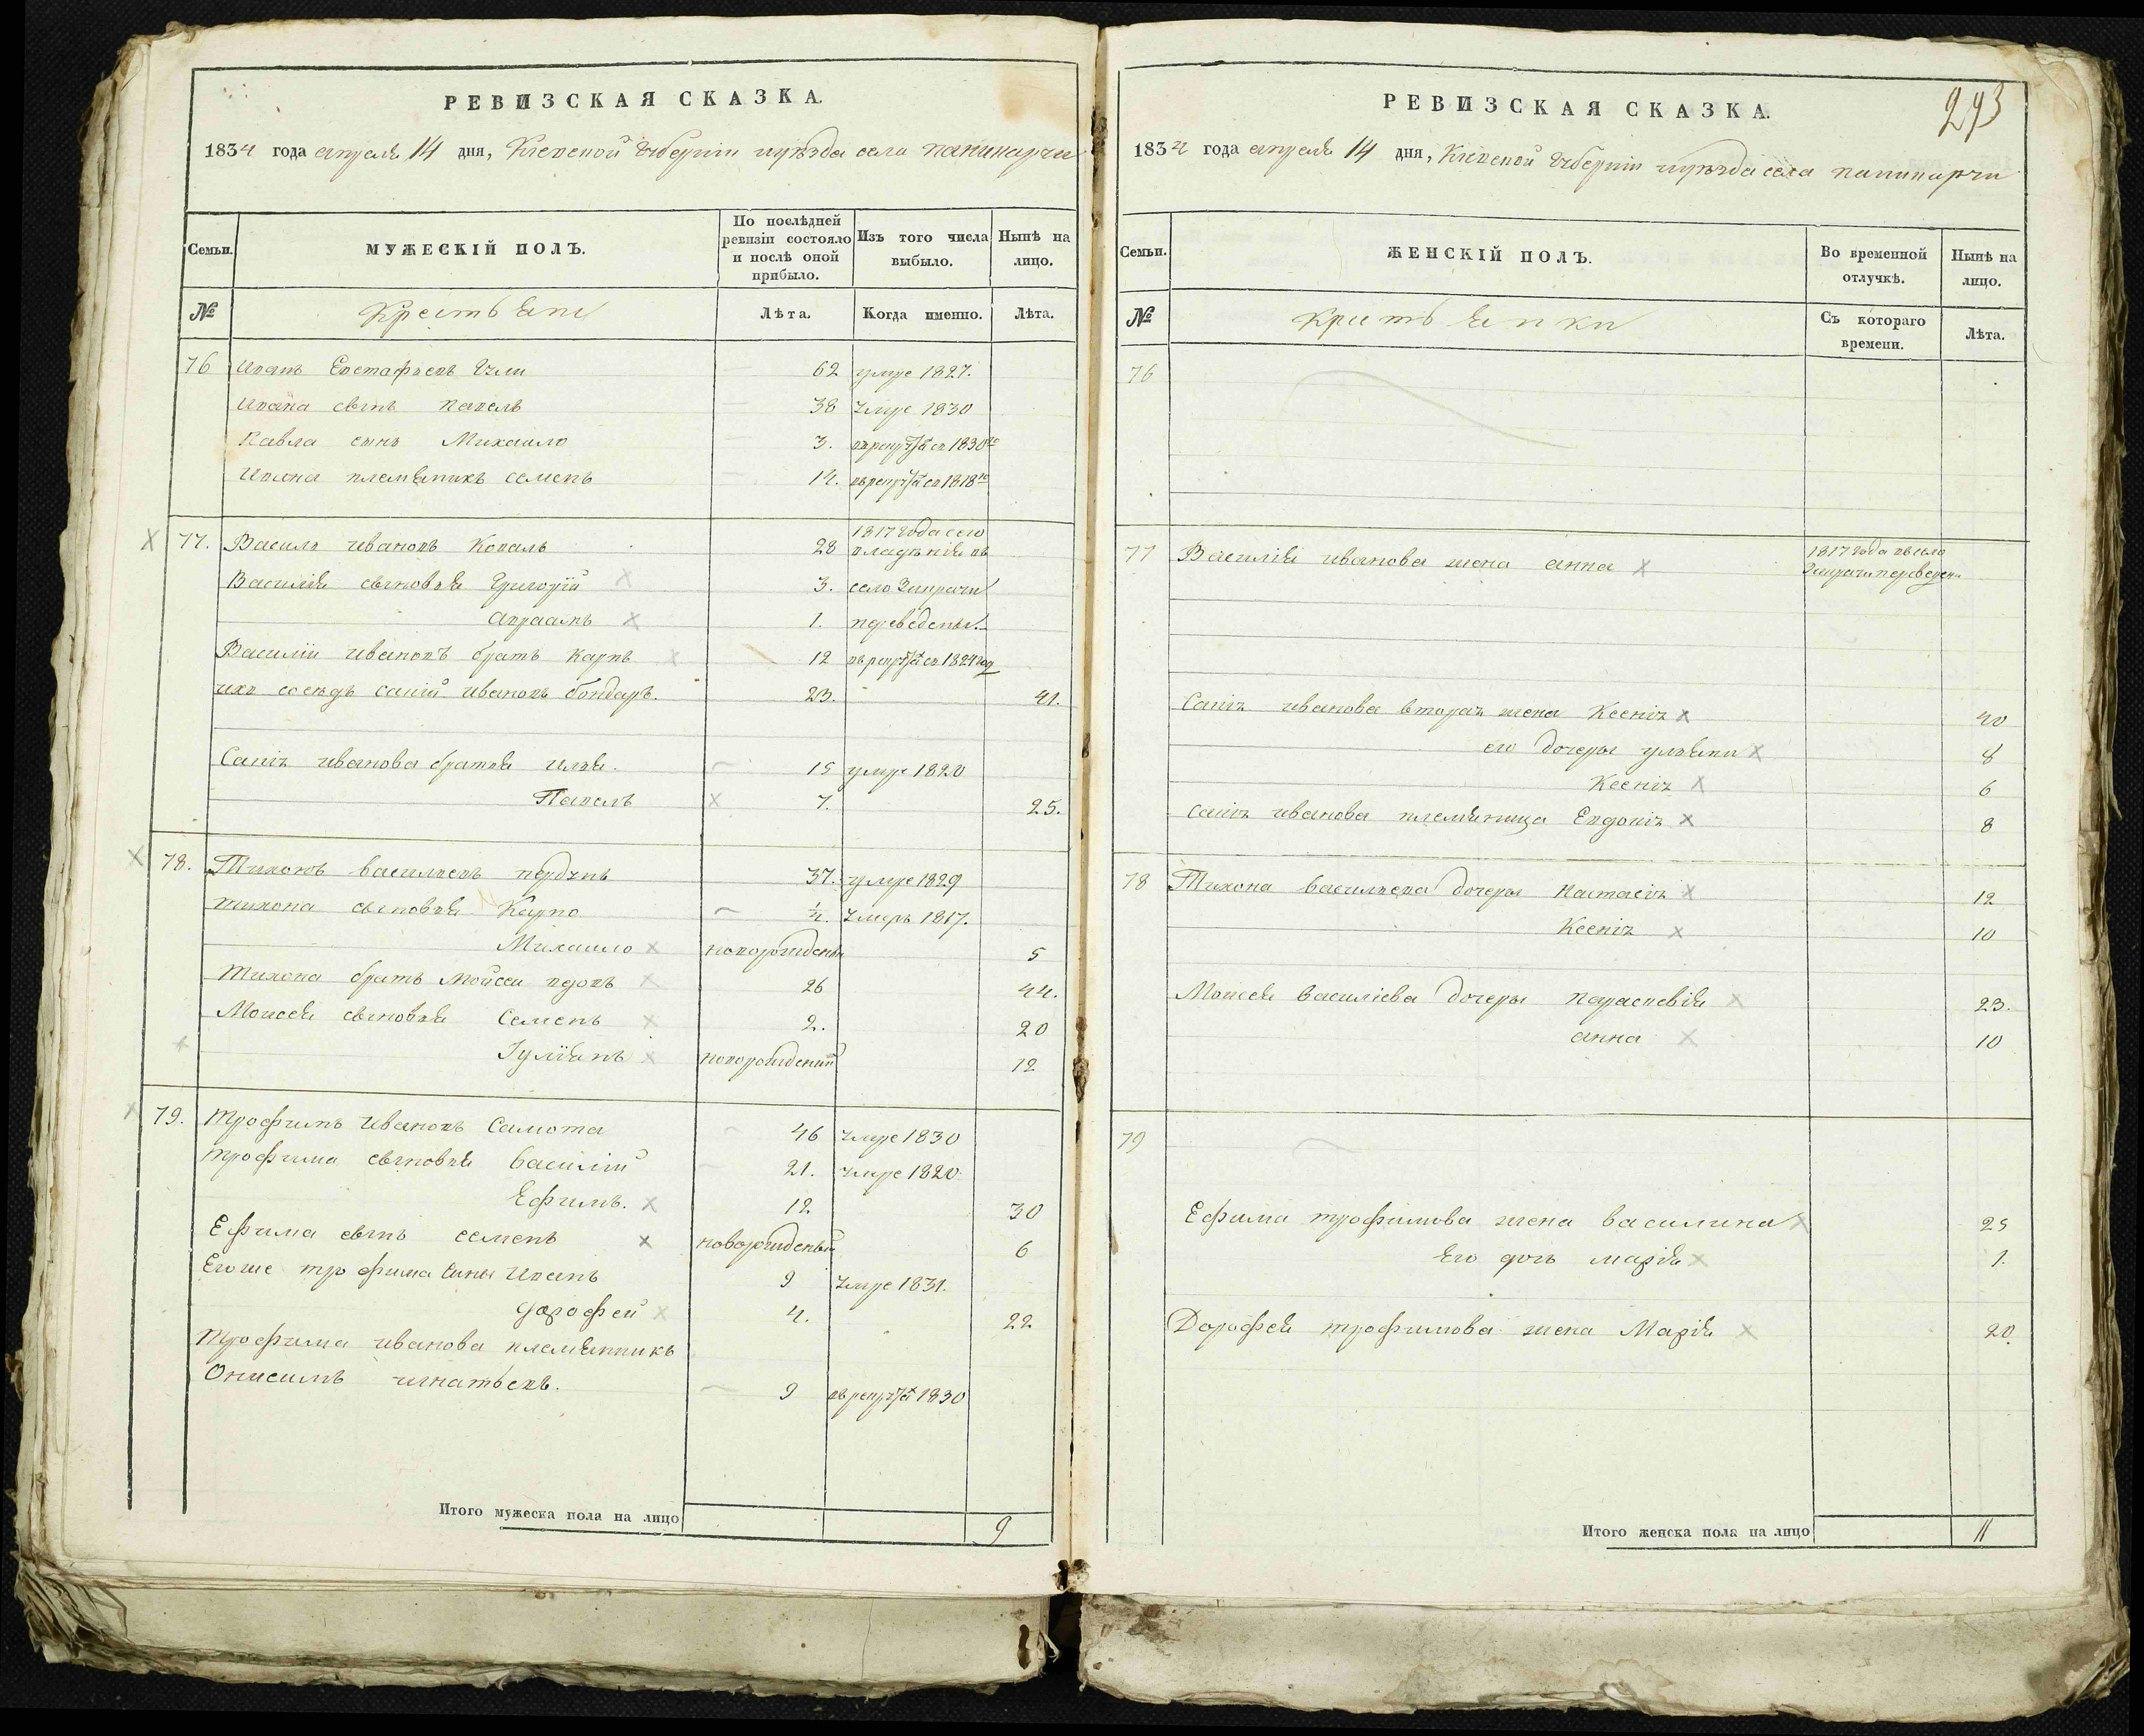 РЕВИЗСКАЯ СКАЗКА.
1834 года апреля 14 дня, Киевской губернии уѣзда села
Семьи.
МУЖЕСКІЙ ПОЛЪ.
По послѣдней ревизіи состояло и послѣ оной прибыло.
Изъ того числа выбыло.
Нынѣ на лицо.
№
Крестьяне
Лѣта.
Когда именно.
Лѣта.
76 Иванъ Евстафьевъ 62 умре 1827.
Ивана сынъ Павелъ 38 умре 1830
Павла сынъ Михайло 3. 1830
Ивана племяникъ Семенъ 14. 1818
1817 года сего
77. Василь Ивановъ Коваль 28 владѣнія въ
Василія сыновья Григорій 3. село
Авраамъ 1. переведены
Василій Ивановъ братъ Карпъ 12 1824
ихъ сосѣдъ Савій Ивановъ бондарь. 23. 41.
Савія Иванова братья Илья. 15 умре 1820
Павелъ 7. 25.
78. Тихонъ Васильевъ 37. умре 1829
Тихона сыновья Карпо 1/4. умеръ 1817.
Михайло новорожденъ 5
Тихона братъ Мойсей вдовъ 26 44.
Моисея сыновья Семенъ 2. 20
Іуліянъ новорожденый 12
79. Трофимъ Ивановъ Самота 46 умре 1830
Трофима сыновья Василій 21. умре 1820
Ефимъ. 12 30
Ефима сынъ Семенъ новорожденый 6
Его же Трофима сыны Иванъ 9 умре 1831.
Дорофей 4. 22
Трофима Иванова племянникъ
Онисимъ Игнатьевъ. 9 1830
Итого мужеска пола на лицо 9
293
РЕВИЗСКАЯ СКАЗКА.
1834 года апреля 14 дня, Киевской губернии уѣзда села
Семьи.
ЖЕНСКІЙ ПОЛЪ.
Во временной отлучкѣ.
Нынѣ на лицо.
№
Съ котораго времени.
Лѣта.
76
77 Василія Иванова жена Анна 1817 года въ село
переведена
Савія Иванова вторая жена Ксенія 40
его дочеры Ульяна 8
Ксенія 6
Савія Иванова племяница Евдокія 8
78 Тихона Васильева дочеры Настасія 12
Ксенія 10
Моисея Василіева дочеры Параскевія 23.
Анна 10
79
Ефима Трофимова жена Василина 25
Его дочь Марія 1.
Дорофея Трофимова жена Марія 20
Итого женска пола на лицо 11